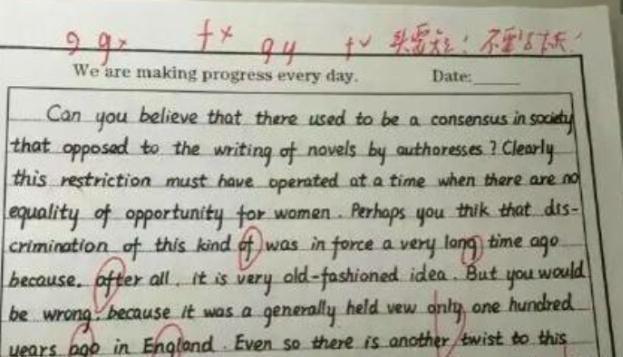 g gx fx gy fv 头需短！不要写太长！
We are making progress every day. Date:
Can you believe that there used to be a consensus in society
that opposed to the writing of novels by authoresses? Clearly
this restriction must have operated at a time when there are no
equality of opportunity for women. Perhaps you thik that dis-
crimination of this kind of was in force a very long time ago
because, after all, it is very old-fashioned idea. But you would
be wrong, because it was a generally held vew only one hundred
years ago in England. Even so there is another twist to this